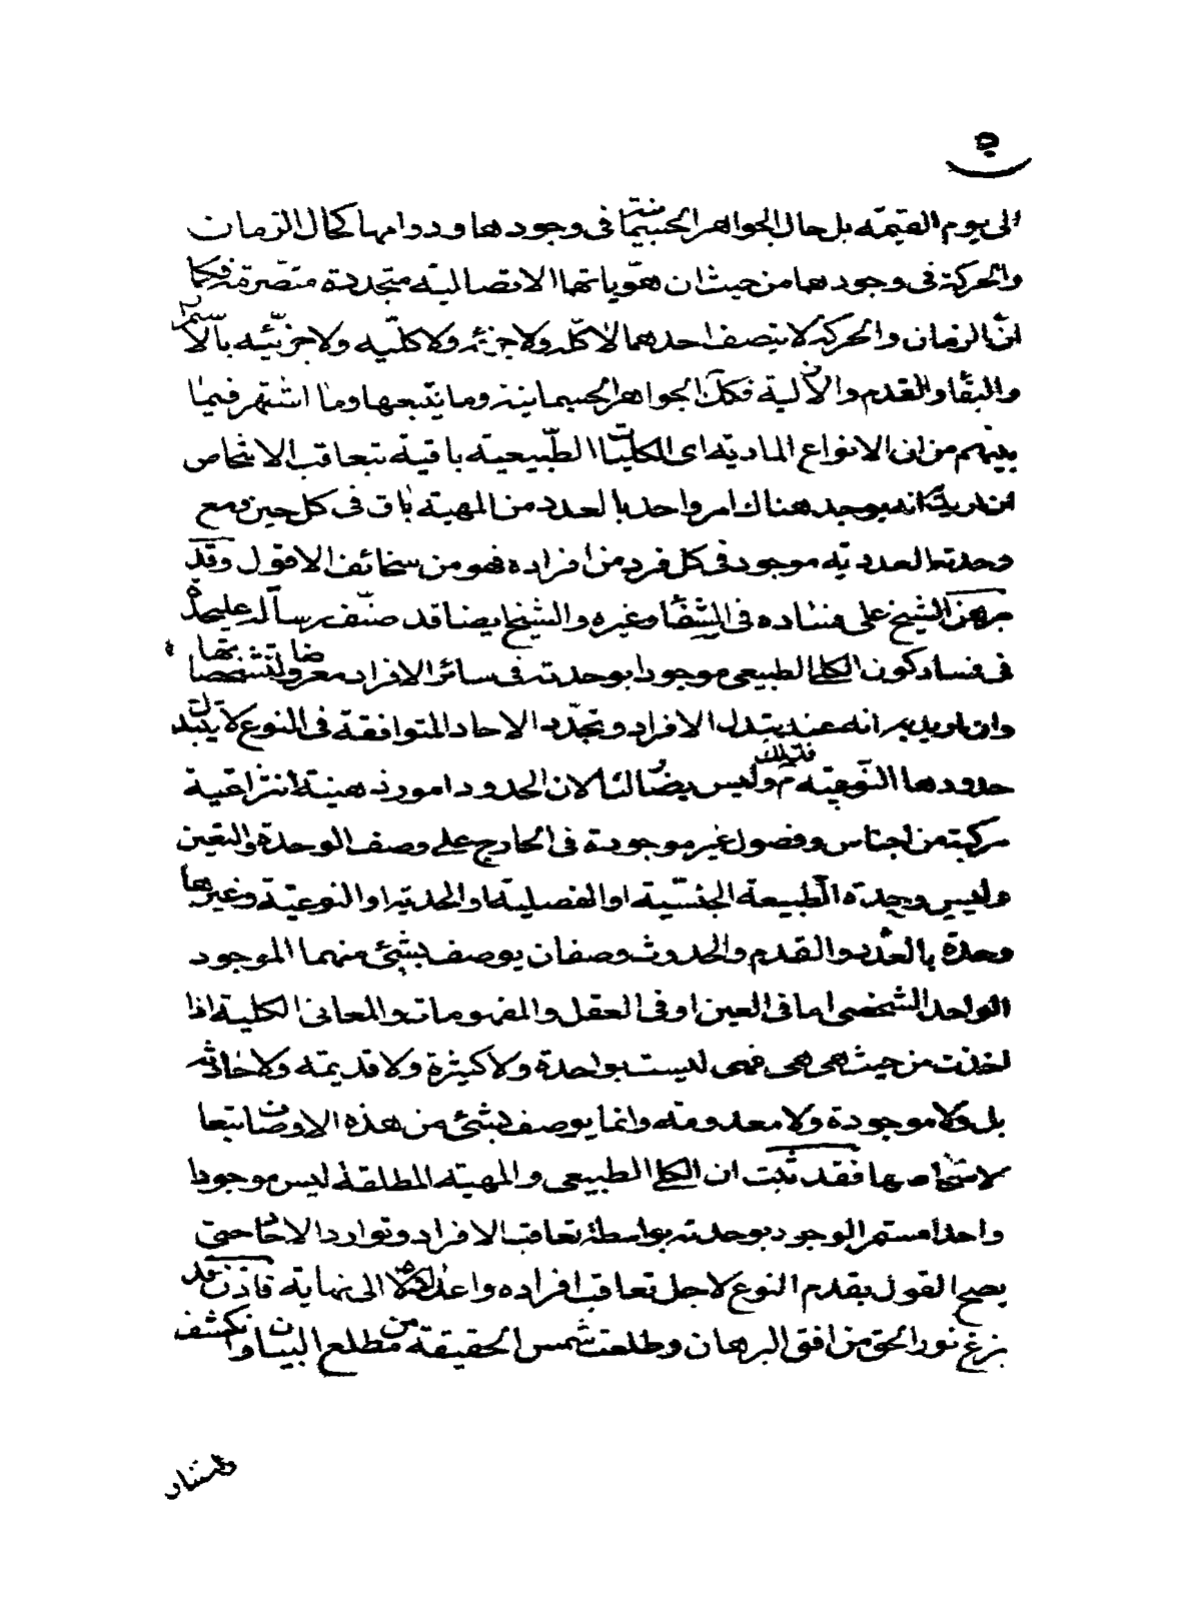 الى يوم القيمة بل حال الجواهر الجسمانية في وجودها ودوامها كحال الزمان
والحركة في وجودهما من حيث ان هوياتهما الاتصالية متجددة متصرمة فكما
ان الزمان والحركة لا يتصف احدهما لا كله ولا جزئه ولا كليه ولا جزئيه بالاستمرار
والبقاء والقدم والازلية فكك الجواهر الجسمانية وما يتبعها وما اشتهر فيما
بينهم من ان الانواع المادية اى الكليات الطبيعية باقية بتعاقب الاشخاص
ان اريد به انه يوجد هناك امر واحد بالعدد من المهية باق في كل حين ومع
وحدته العددية موجود في كل فرد من افراده فهو من سخائف الاقول وقد
برهن الشيخ على فساده في الشفاء وغيره والشيخ ايضا قد صنف رسالة عليحدة
في فساد كون الكلى الطبيعى موجودا بوحدته في سائر الافراد معروضا لتشخصاتها
وان اريد به انه عند تبدل الافراد وتجدد الاحاد المتوافقة في النوع لا يتبدل
حدودها النوعية فذلك م وليس يضرّ لنا لان الحدود امور ذهنية انتزاعية
مركبة من اجناس وفصول غير موجودة في الخارج على وصف الوحدة والتعين
وليس وحدة الطبيعة الجنسية او الفصلية او الحدية او النوعية وغيرها
وحدة بالعدد والقدم والحدوث وصفان يوصف بشئ منهما الموجود
الواحد الشخصى اما في العين او في العقل والمفهومات والمعانى الكلية اذا
اخذت من حيث هى هى فهى ليست بواحدة ولا كثيرة ولا قديمة ولا حادثة
بل ولا موجودة ولا معدومة وانما يوصف بشئ من هذه الاوصاف تبعا
لاشخاصها فقد ثبت ان الكلى الطبيعى والمهية المطلقة ليس موجودا
واحدا مستمر الوجود بوحدته بواسطة تعاقب الافراد وتوارد الاشخاص حتى
يصح القول بقدم النوع لاجل تعاقب افراده واعداده لا الى نهاية فاذن قد
بزغ نور الحق من افق البرهان وطلعت شمس الحقيقة من مطلع البيان وانكشف